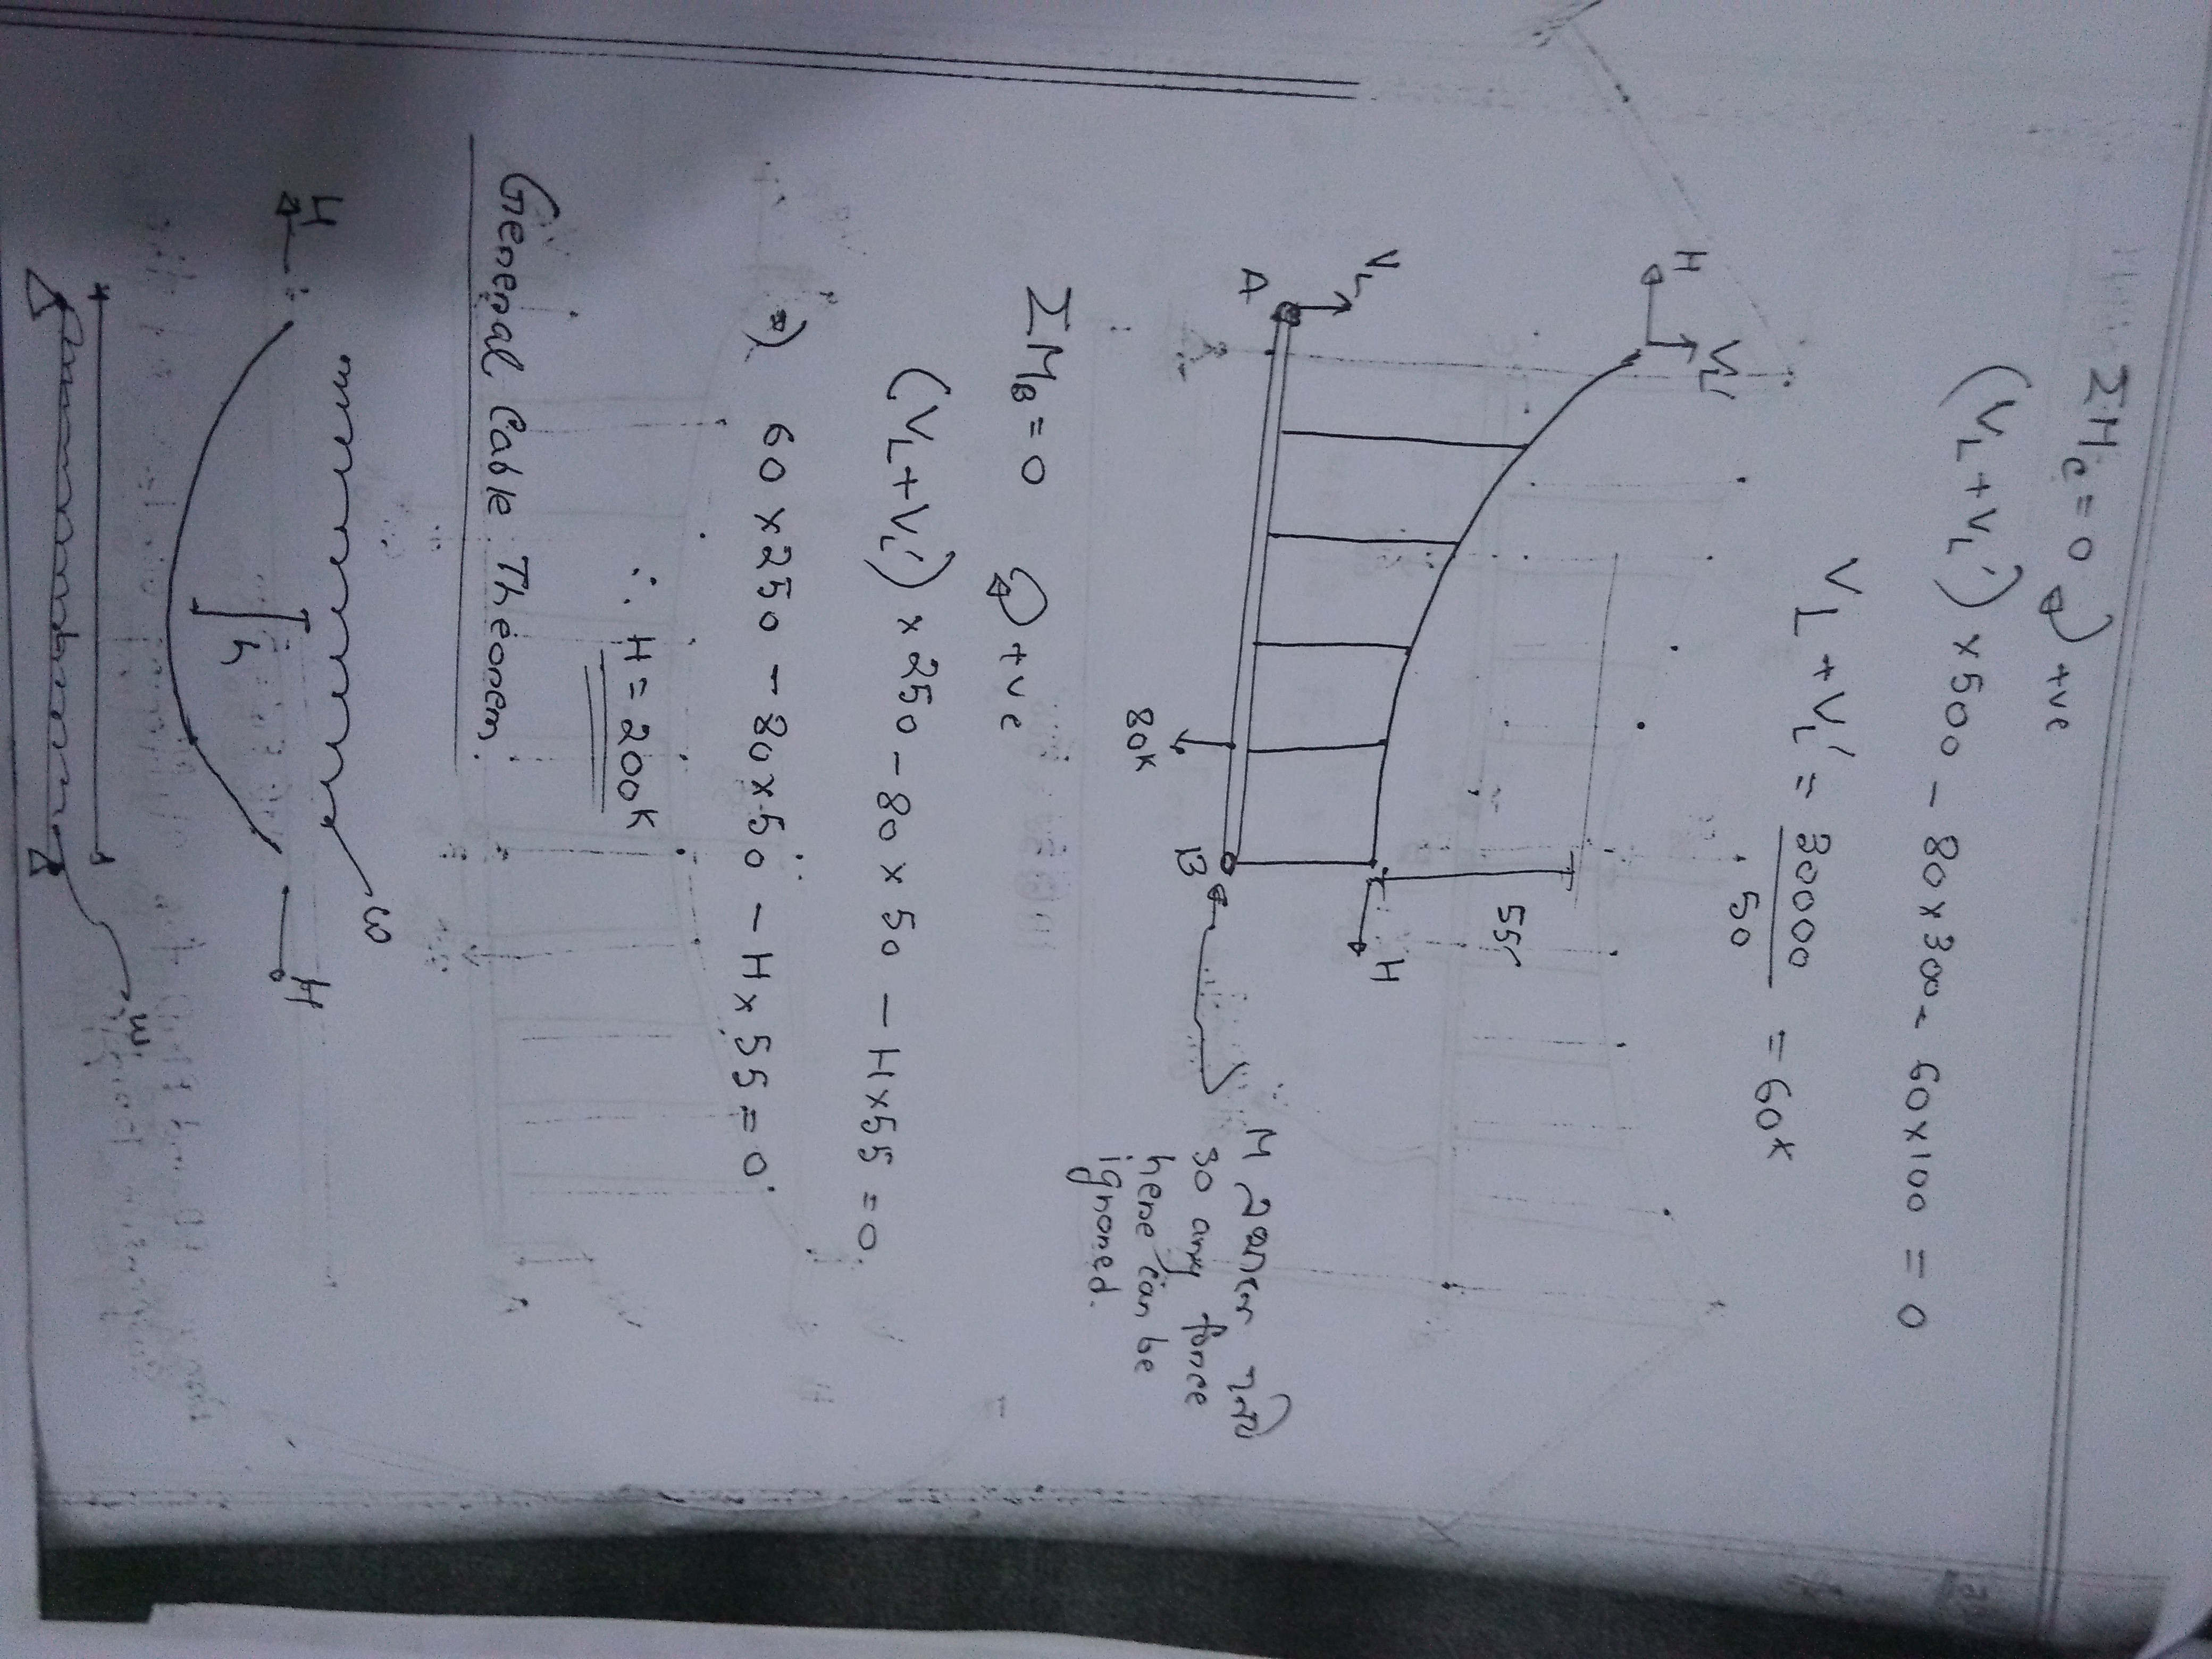 ΣMc = 0 +ve
(VL + VL') × 500 - 80 × 300 - 60 × 100 = 0
VL + VL' = 30000 / 50 = 60K
H VL'
55'
H
VL
A
B
80K
so any force
here can be
ignored.
ΣMB = 0 +ve
(VL + VL') × 250 - 80 × 50 - H × 55 = 0
⇒ 60 × 250 - 80 × 50 - H × 55 = 0
∴ H = 200K
General Cable Theorem.
w
H
h
H
w